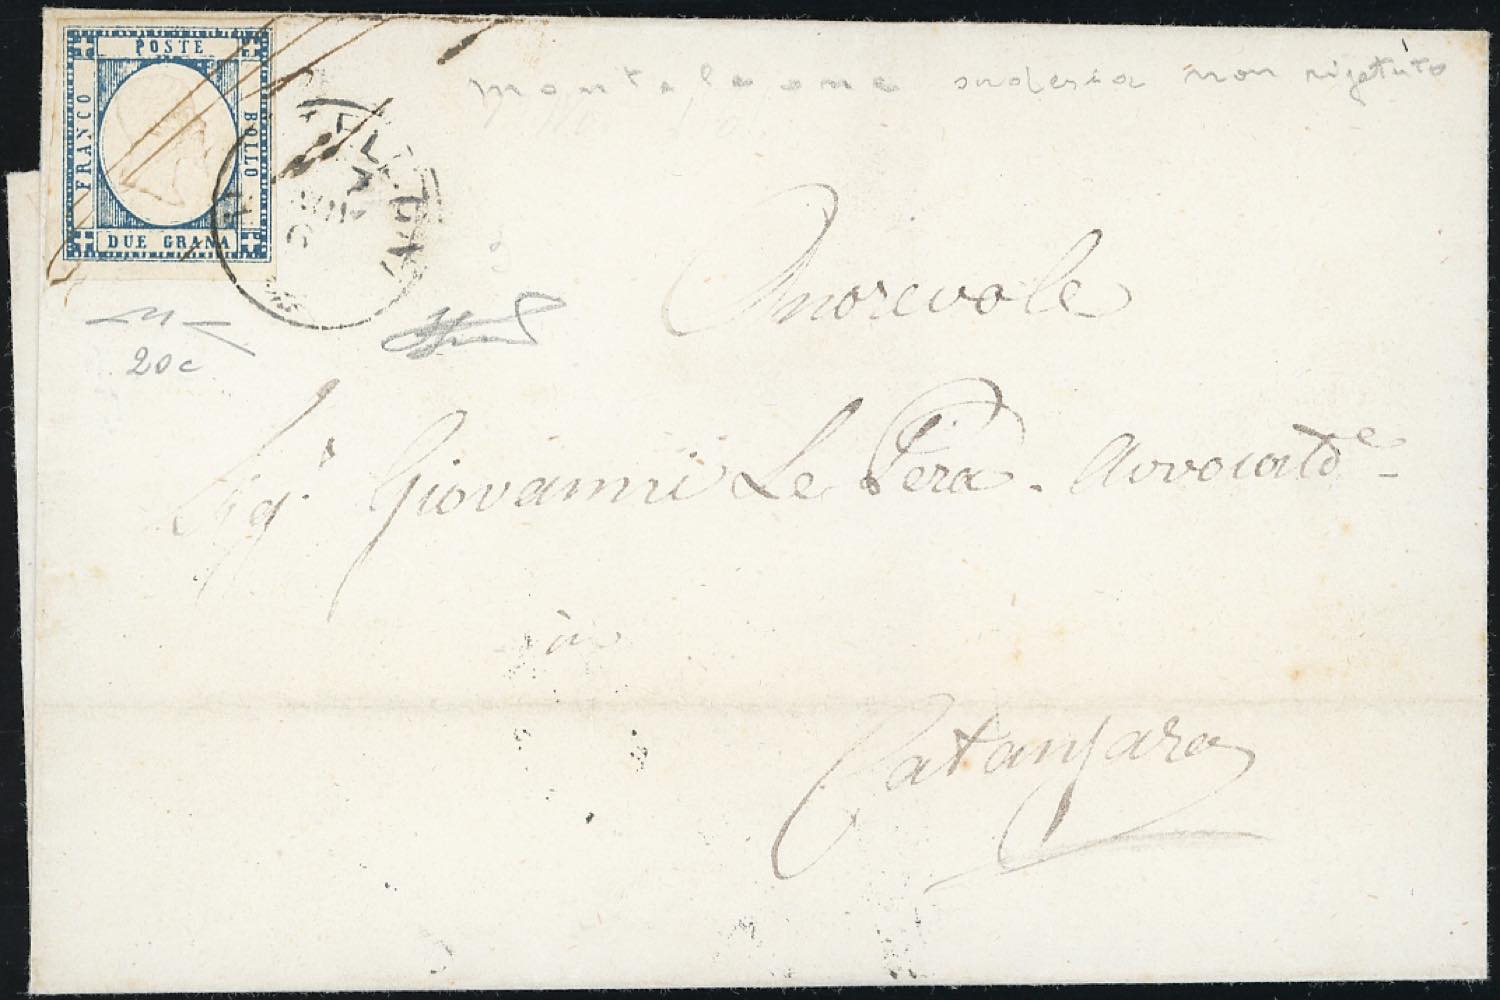 POSTE
FRANCO
BOLLO
DUE GRANA
monteleone svolazzo non ripetuto
20c
Onorevole
Sig.r Giovanni Le Pera. Avvocato
in
Catanzaro